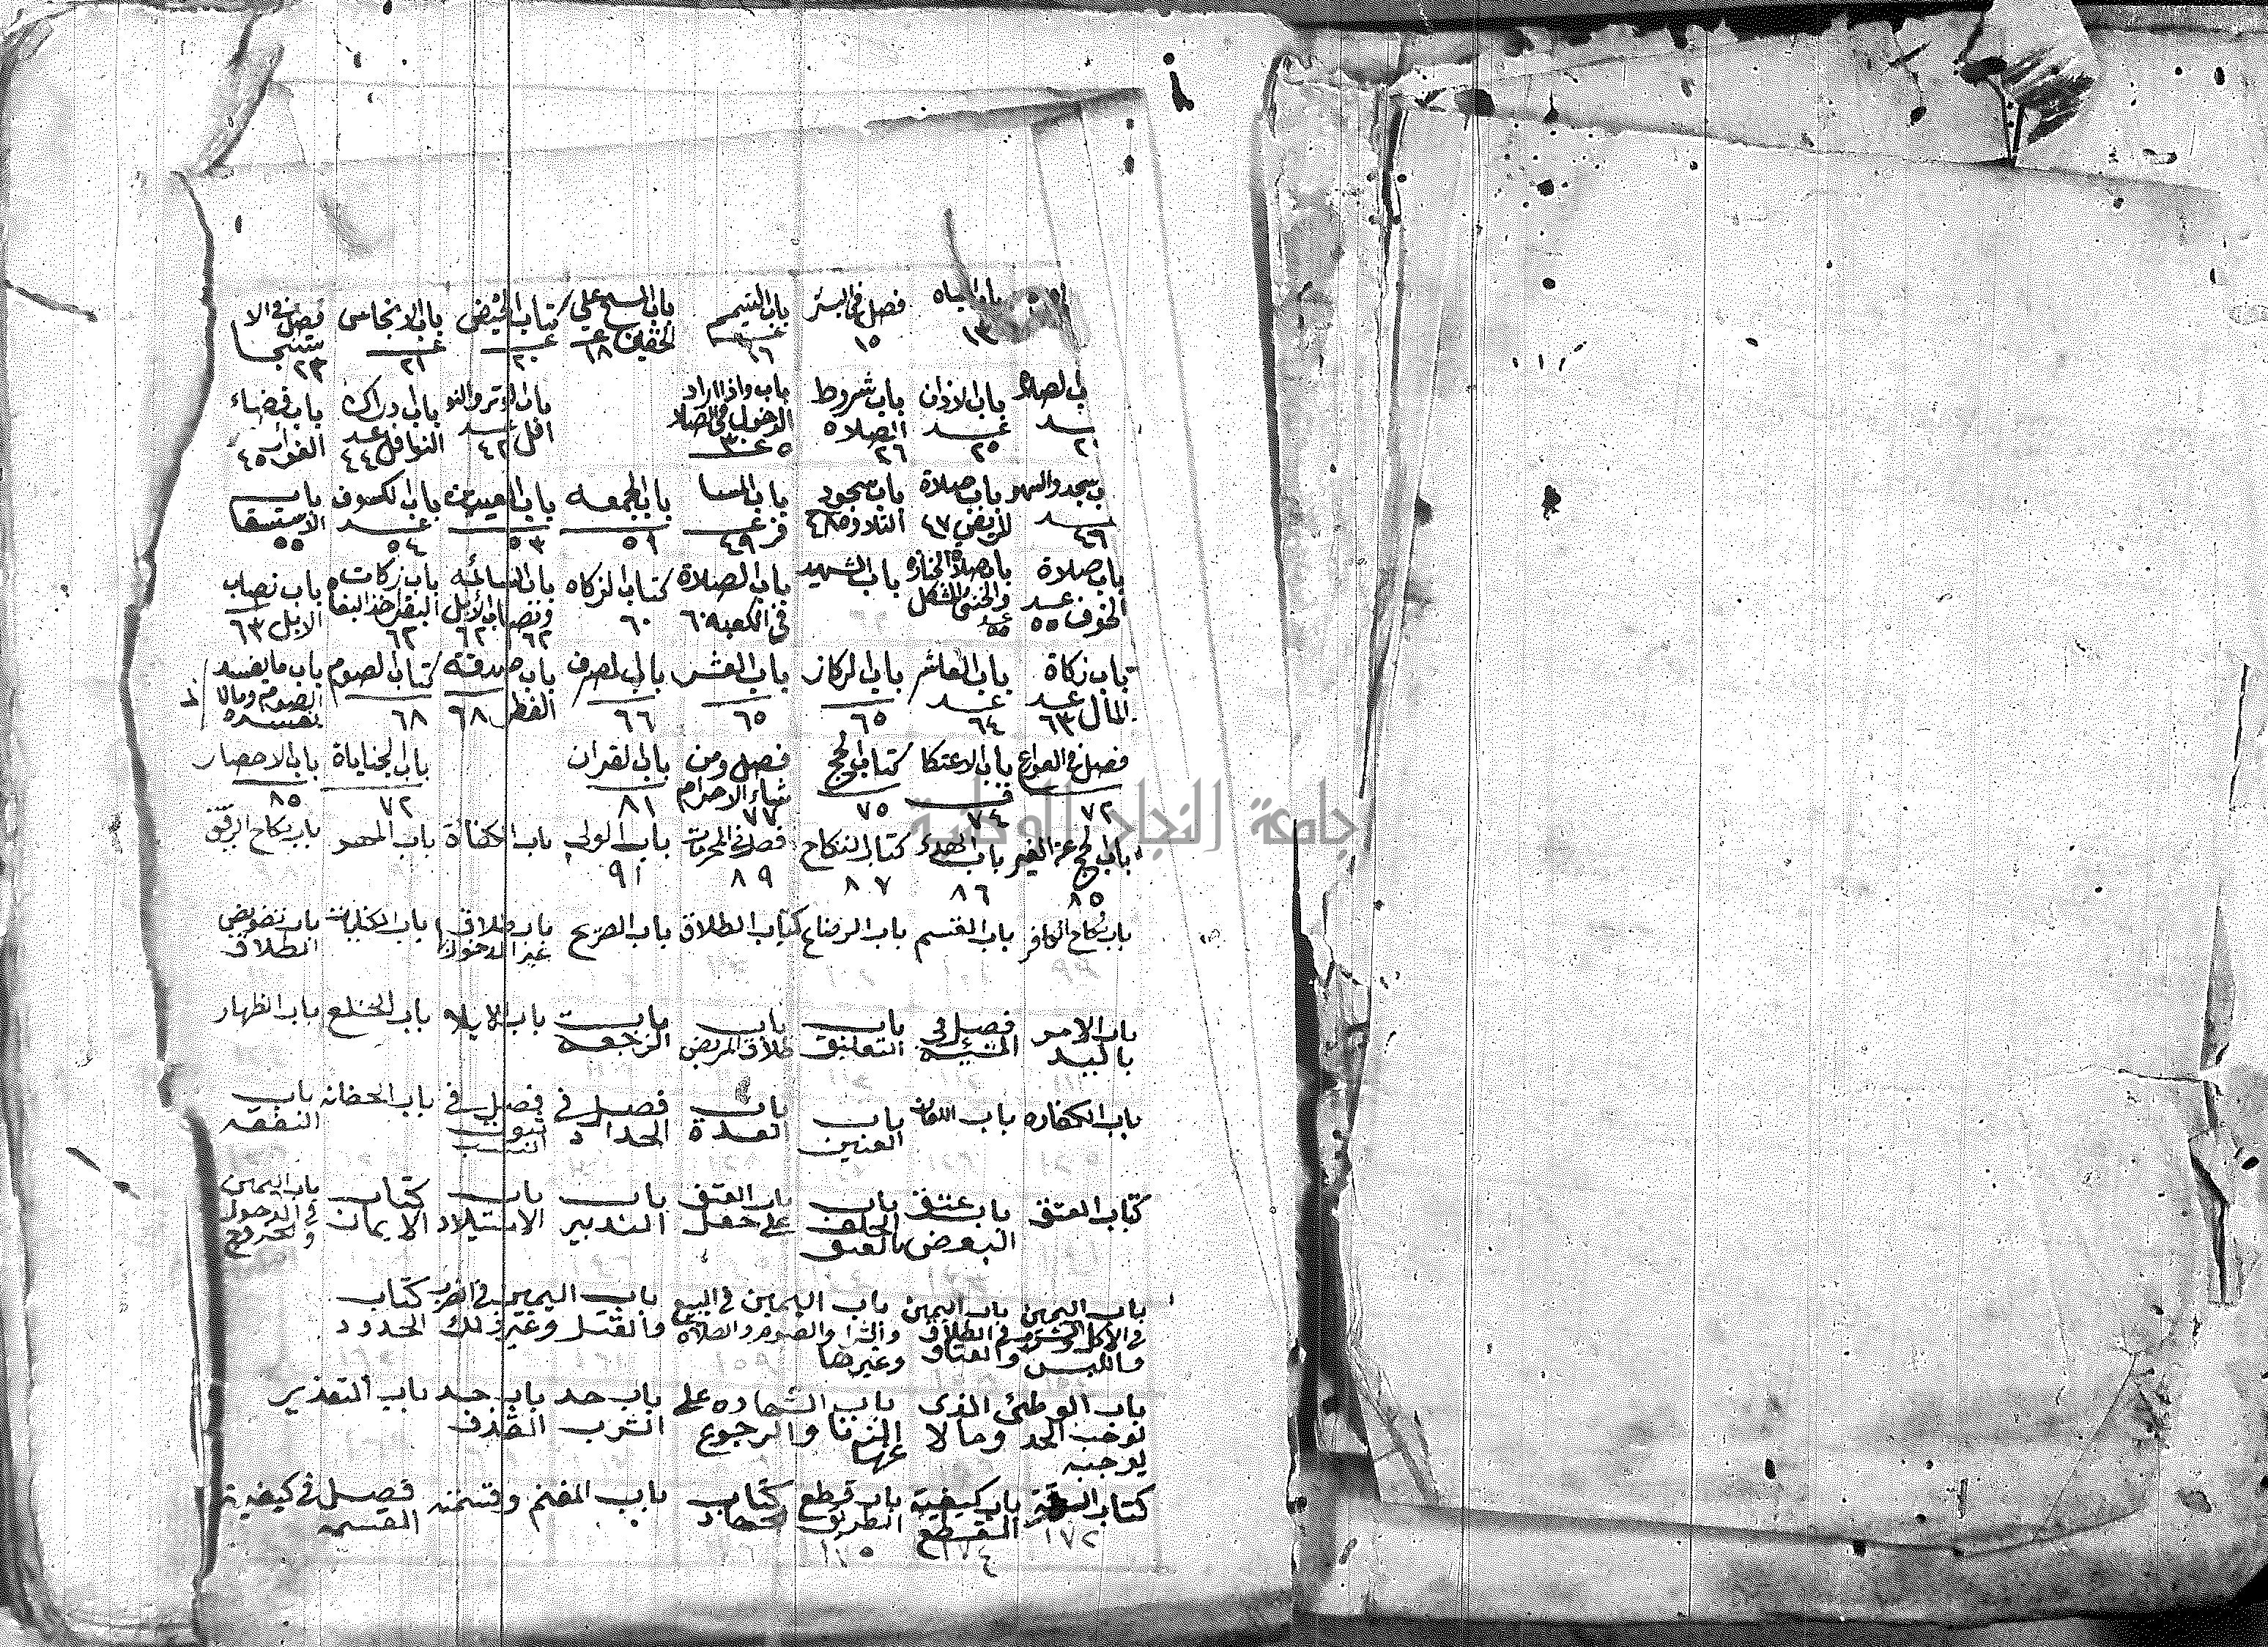 باب المياه فصل في البئر باب التيمم باب المسح علي كتاب الحيض باب الانجاس فصل في الا
١٣ ١٥ ١٦ الخفين ١٨ ٢٠ ٢١ ستنجا ٢٣
باب الاذان باب شروط باب واذا اراد باب الوتر والنو باب ادراك باب قضاء
٢٥ الصلاه ٢٦ الدخول في الصلا ٣٠ افل ٤٢ النوافل ٤٤ الفوائت ٤٥
باب صلاة باب سجود باب المسا باب الجمعه باب العيدين باب الكسوف باب
٤٦ المريض ٤٧ التلاوه ٤٨ فر ٤٩ ٥١ ٥٣ ٥٤ الاستسقا ٥٥
باب صلاة باب صلاة الجنازه باب الشهيد باب الصلاة كتاب الزكاه باب السائمه باب زكات باب نصاب
الخوف ٥٥ والخنثي المشكل ٥٥ في الكعبه ٦٠ ٦٠ ونصاب الابل ٦٢ ٦٢ الابل ٦٣
باب زكاة باب العاشر باب الركاز باب العشر باب المصرف باب صدقة كتاب الصوم باب ما يفسد
المال ٦٣ ٦٤ ٦٥ ٦٥ ٦٦ الفطر ٦٨ ٦٨ الصوم ومالا يفسده
فصل في العوارض باب الاعتكا كتاب الحج فصل ومن باب القران باب الجناياة باب الاحصار
٧٢ ف ٧٤ ٧٥ شاء الاحرام ٧٧ ٨١ ٧٢ ٨٥
باب الحج عن الغير باب الهدي كتاب النكاح فصل في المحرمات باب الولي باب الكفاءة باب المهر باب نكاح الرقيق
٨٥ ٨٦ ٨٧ ٨٩ ٩١
باب نكاح الكافر باب القسم باب الرضاع كتاب الطلاق باب الصريح باب طلاق باب الكنايات باب تفويض
غير المدخول الطلاق
باب الامر فصل في باب باب باب باب الايلاء باب الخلع باب الظهار
باليد المشيئه التعليق طلاق المريض الرجعة
باب الكفاره باب اللعان باب باب فصل في فصل في باب الحضانه باب
العنين العدة الحداد ثبوت النسب النفقه
كتاب العتق باب عتق باب باب العتق باب باب كتاب باب اليمين
البعض الحلف بالعتق علي جعل التدبير الاستيلاد الايمان في الدخول والخروج
باب اليمين باب اليمين باب اليمين في البيع باب اليمين في الضرب كتاب
في الاكل والشرب في الطلاق والشرا والصوم والصلاة والقتل وغير ذلك الحدود
واللبس والعتاق وغيرها
باب الوطئ الذي باب الشهاده علي باب حد باب حد باب التعذير
يوجب الحد ومالا الزنا والرجوع الشرب القذف
يوجبه عنها
كتاب السرقة باب كيفية باب قطع كتاب باب المغنم وقسمته فصل في كيفية
١٧٢ القطع ١٧٤ الطريق الجهاد القسمه
جامعة النجاح الوطنية